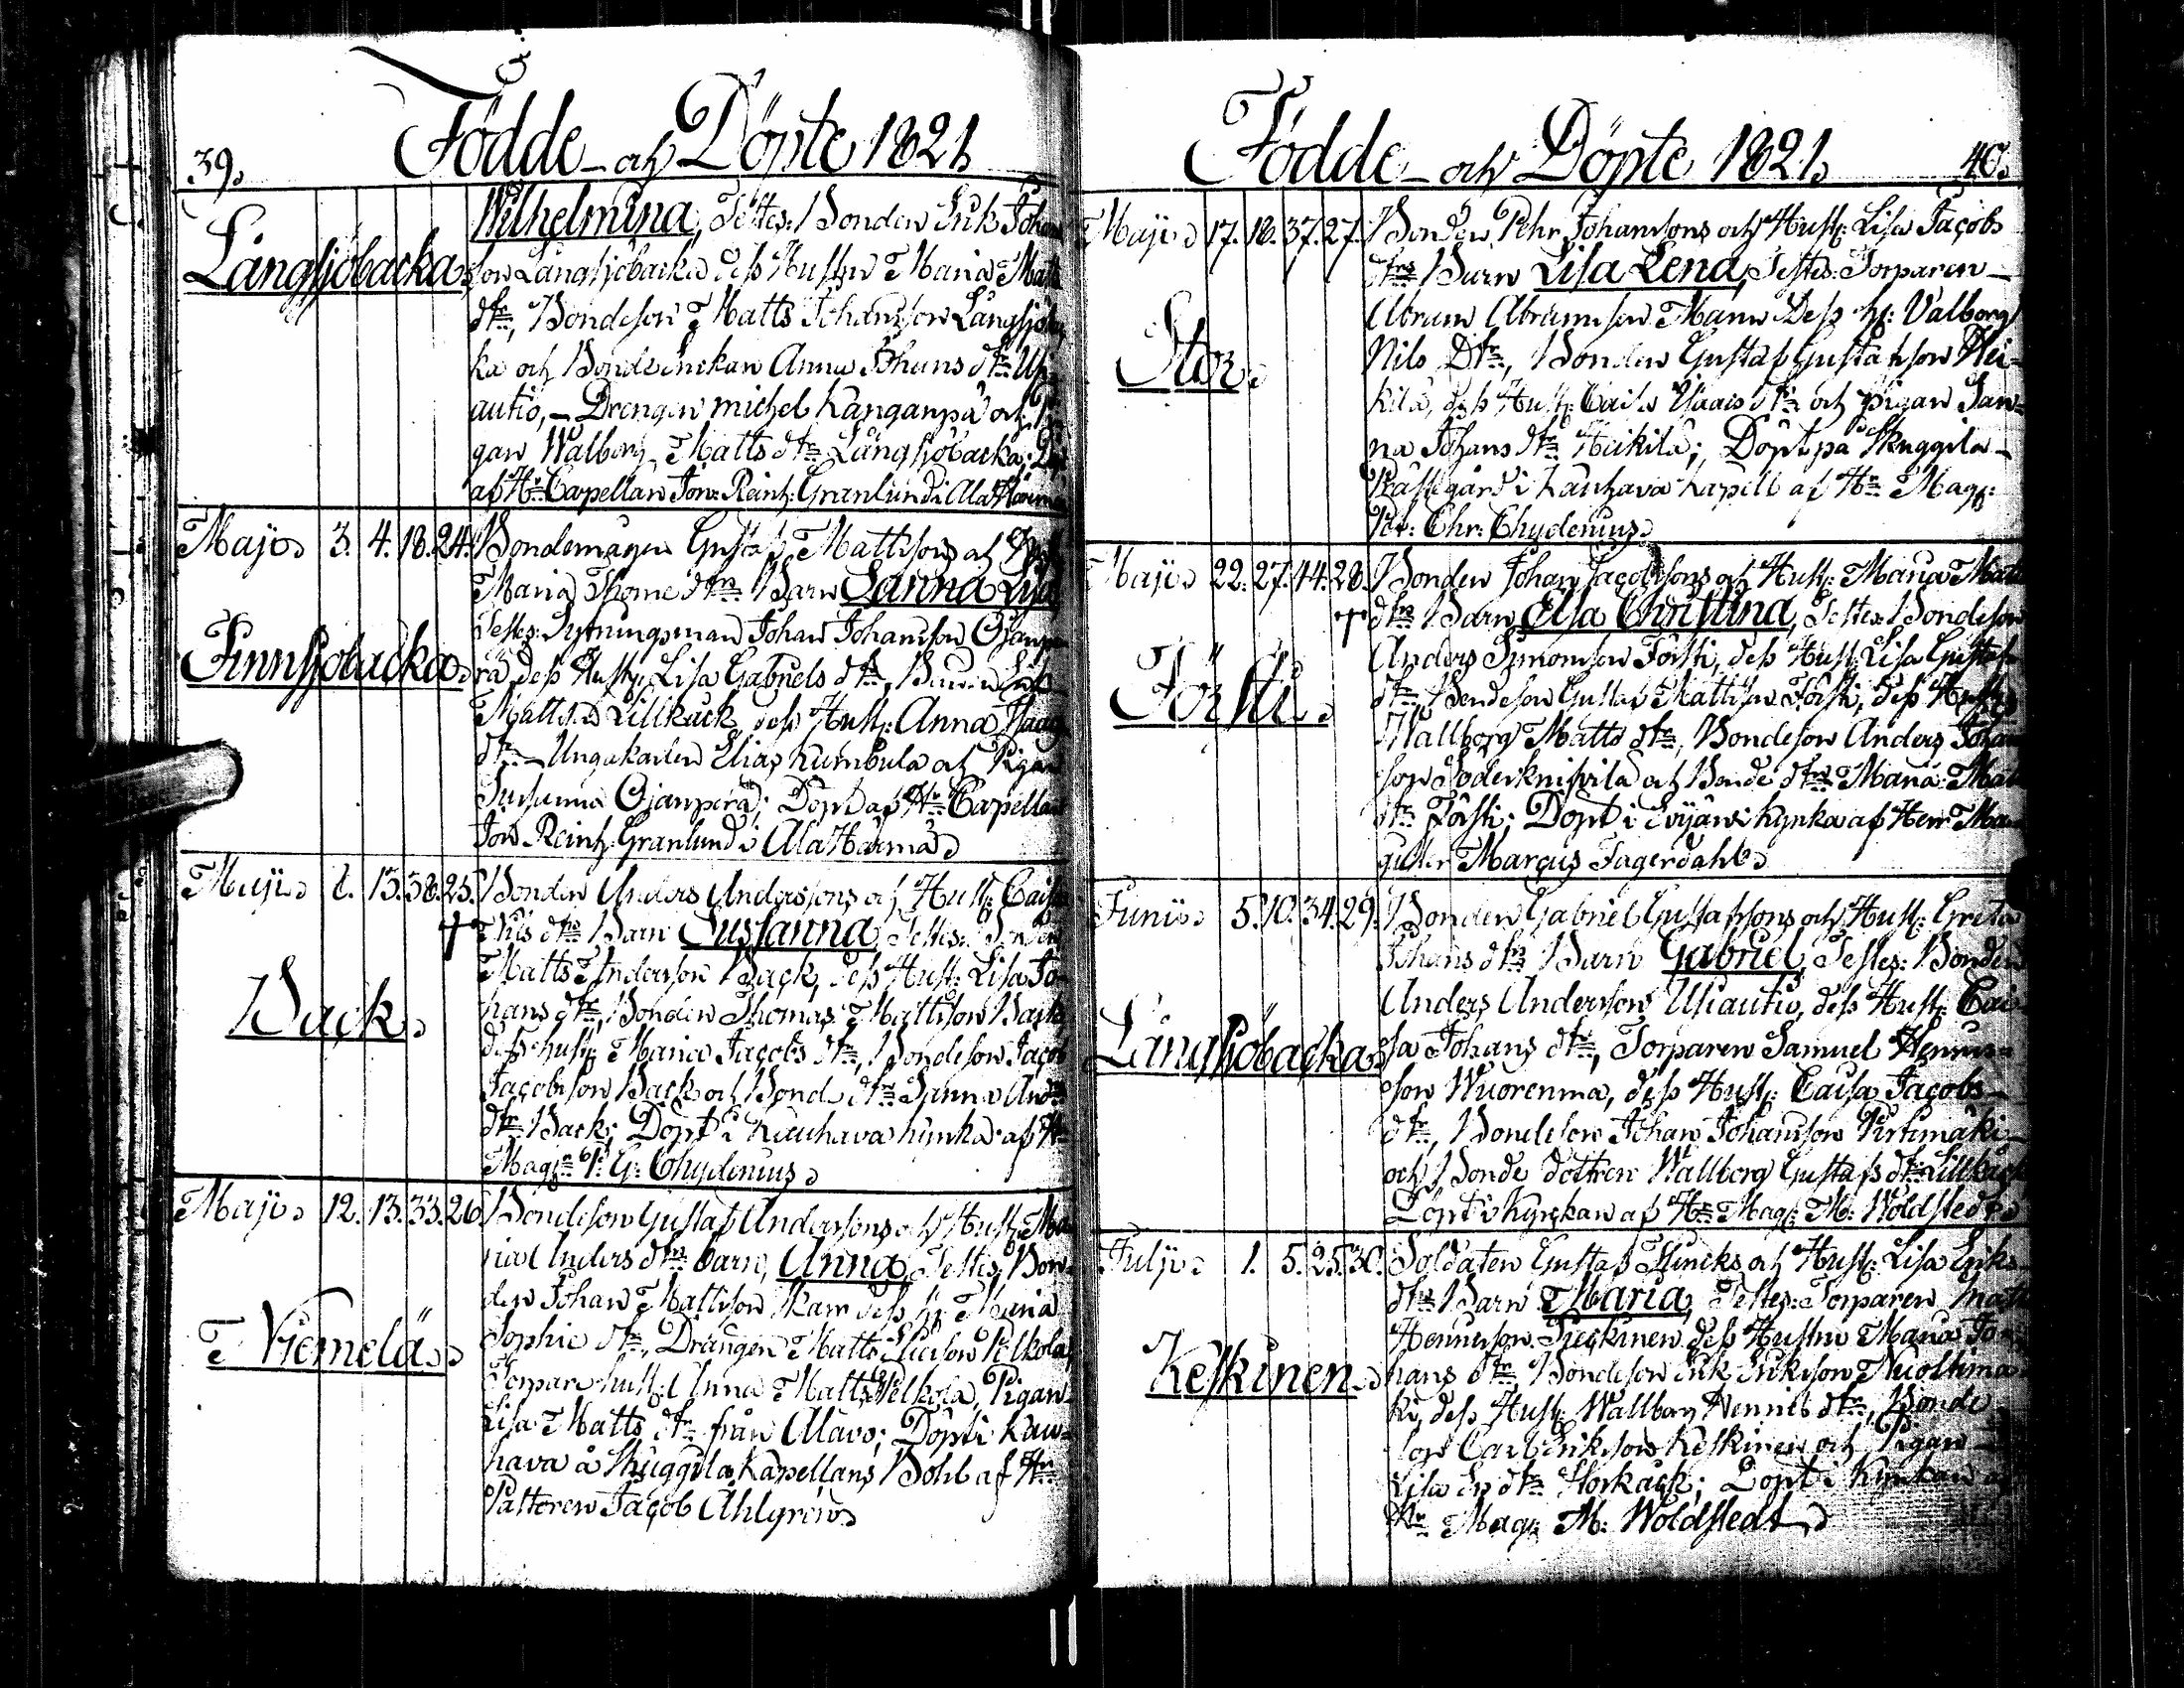 39.
Födde och Döpte 1821.
Långsjöbacka
Wilhelmina, Testes: Bonden Erik Johans
son Långsjöbacka dess Hustru Maria Matts
dtr, Bondeson Matts Johansson Långsjöbac
ka och Bonde Enkan Anna Johans dtr
autio, Drengen Michel Kanganpä och Pi
gan Walborg Matts dtr Långsjöbacka; Döpt
af Hr Capellan Jon: Reinh: Granlund i Ala Härma
Maji 3. 4. 18. 24.
Finnsjöbacka
Bondemågen Gustaf Mattssons och Hust:
Maria Thome dtrs Barn Sanna Lisa
Testes: Sytningsman Johan Johansson Ojanpe
rä dess Hust: Lisa Gabriels dtr,
Mattss Lillkack dess Hust: Anna Isacs
dtr Ungakarlen Elias Kumbula och Pigan
Susanna Ojanperä; Döpt af Hr Capellan
Jon Reinh: Granlund i Ala Härma
Maji 13. 38. 25.
Back
Bonden Anders Anderssons och Hust: Caisa
Nils dtrs Barn Susanna, Testes: Bonden
Matts Andersson Back, dess Hust: Lisa Jo
hans dtr, Bonden Thomas Mattsson Back
dess Hust: Maria Jacobs dtr, Bondeson Jacob
Jacobsson Back och Bonde dtr Sanna Anders
dtr Back; Döpt i Kauhava kyrka af Hr
Mag: P: G: Chydenius
Maji 12. 13. 33. 26.
Niemelä
Bondeson Gustaf Anderssons och Hust: Ma
ria Anders dtrs barn, Anna, Testes: Bon
den Johan Mattsson Kam dess H: Maria
Sophie dtr, Drängen Matts Pelkola
Torpare hust: Anna Matts Pelkola, Pigan
Lisa Matts dtr från Alavo; Döpt i Kau
hava å Skuggila Kapellans Bohl af Hr
Pastoren Jacob Ahlgren
Födde och Döpte 1821.
40.
Maji 17. 18. 37. 27.
Stor
Bonden Pehr Johanssons och Hust: Lisa Jacobs
dtrs Barn Lisa Lena, Testes: Torparen
Abram Abramsson Mann Dess H: Valborg
Nils Dtr, Bonden Gustaf Gustafsson Hei
kilä, dess Hust: Caisa Isaacs dtr och Pigan San
na Johans dtr Heikilä; Döpt på Skuggila
Prästgård i Kauhava Kapell af Hr Mag:
Pet: Chr: Chydenius
Maji 22. 27. 44. 28.
Försti
Bonden Johan Jacobssons och Hust: Maria Matts
dtrs Barn Elsa Christina, Testes: Bondeson
Anders Simonsson Försti, dess Hust: Lisa Gustafs
dtr, Bondeson Gustaf Mattsson Försti, dess Hust:
Wallborg Matts dtr, Bondeson Anders Johans
son Söderknifsilä och Bonde dtrn Maria Matts
dtr Försti; Döpt i Evijärvi Kyrka af Herr Ma
gister Marcus Fagerdahl
Junii 5. 10. 34. 29.
Långsjöbacka
Bonden Gabriel Gustafssons och Hust: Greta
Johans dtrs Barn Gabriel, Testes: Bonden
Anders Andersson Usiautio, dess Hust: Cai
sa Johans dtr, Torparen Samuel Henriks
son Wuorenma, dess Hust: Caisa Jacobs
dtr, Bondeson Johan Johansson Pirtimäki
och Bonde dottren Wallborg Gustafs dtr Lillkack
Döpt i Kyrkan af Hr Mag: M: Woldstedt
Julji 1. 5. 25. 30.
Keskinen
Soldaten Gustaf Flincks och Hust: Lisa Eriks
dtrs Barn Maria, Testes: Torparen Matts
Henriksson Keskinen dess Hustru Maria Jo
hans dtr Bondeson Erik Eriksson Nuoltima
ki, dess Hust: Wallborg Henriks dtr, Bonde
son Carl Eriksson Keskinen och Pigan
Lisa Er dtr Storkack; Döpt i Kyrkan af
Hr Mag: M: Woldstedt